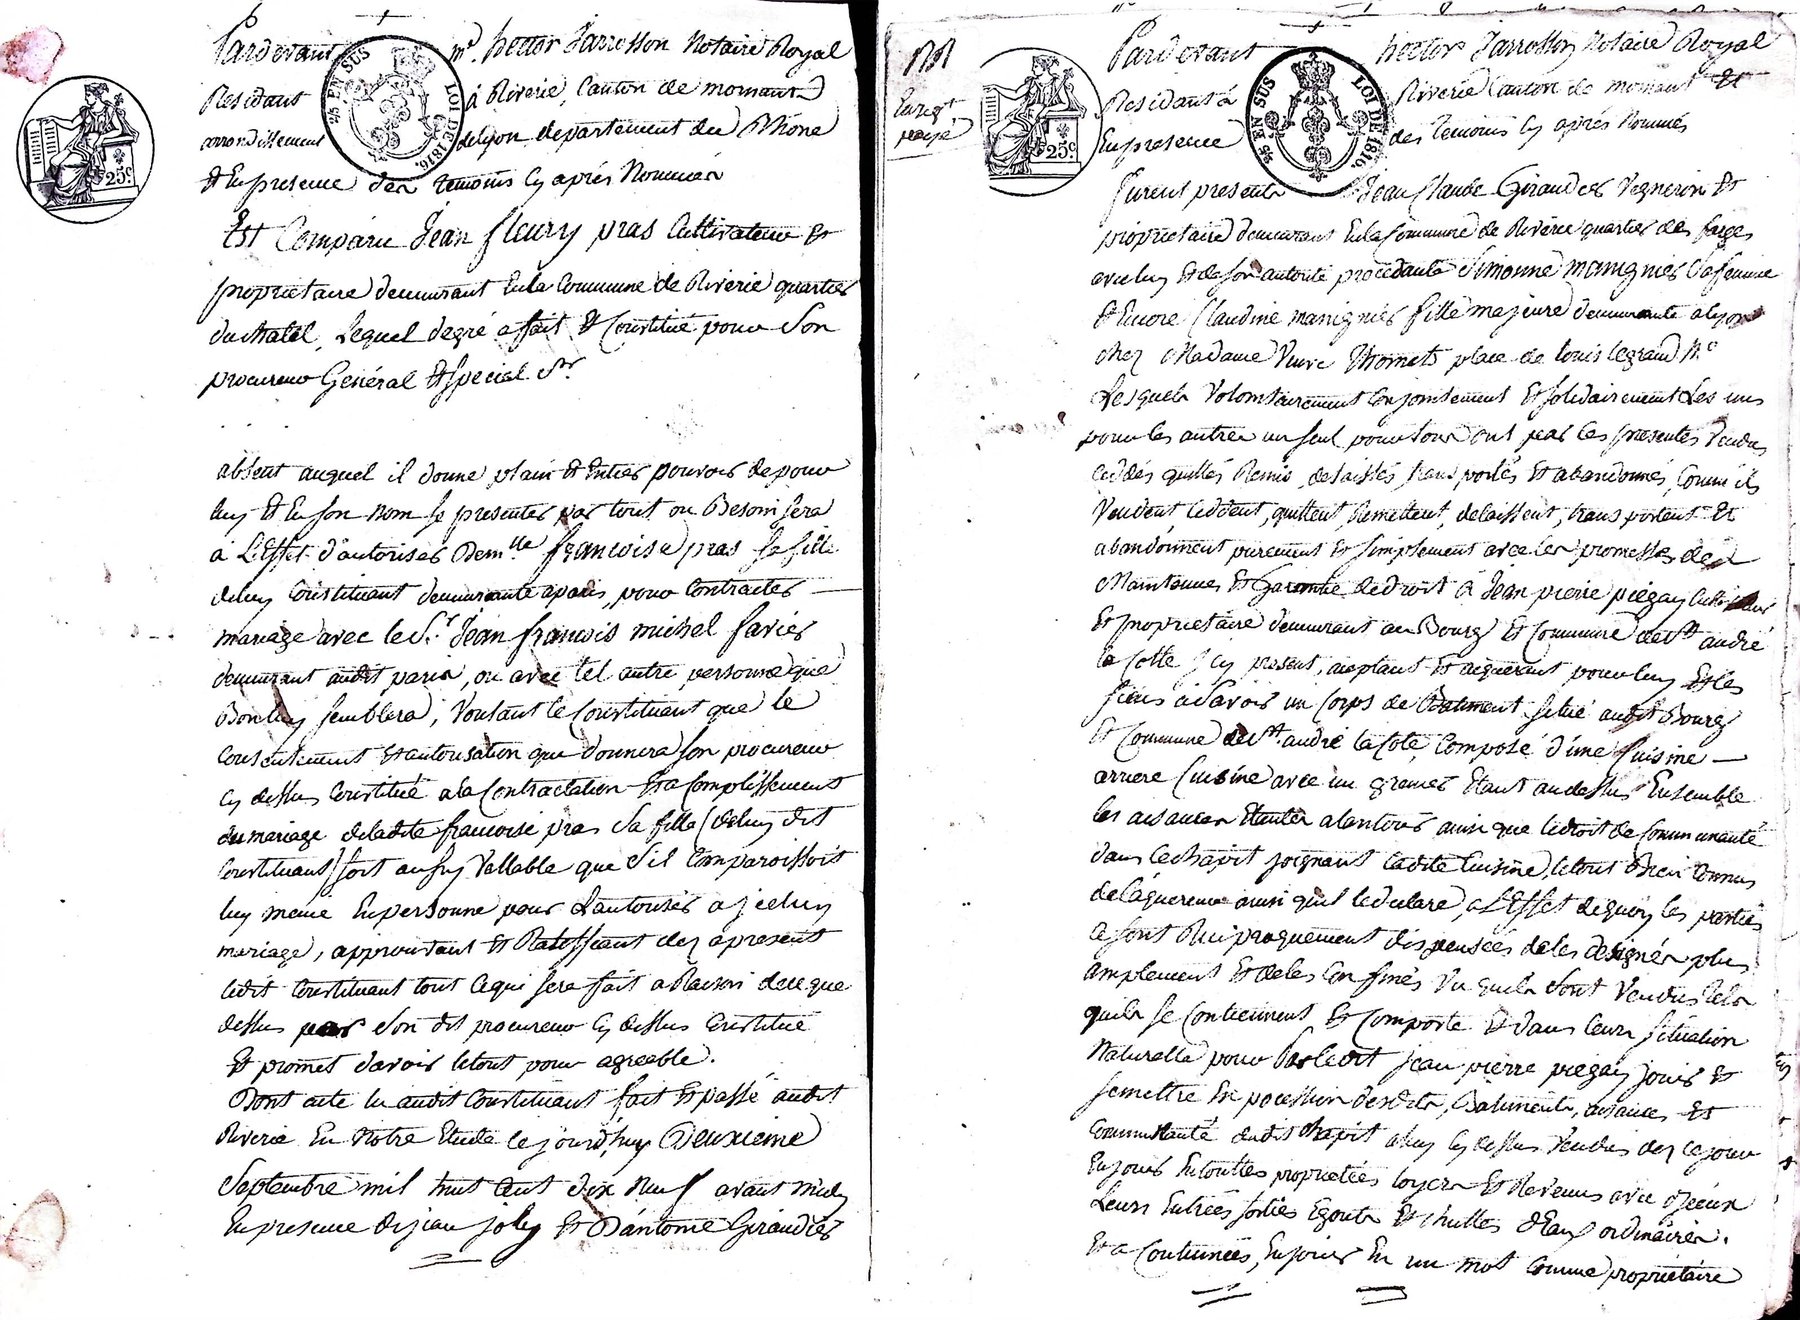 Pardevant Md. hector Jarrosson Notaire Royal
Residant à Riverie, Canton de mornant
arrondissement de lyon departement du Rhône
Et En presence des temoins Cy après Nommés
Est Comparu Jean fleury pras Cultivateur Et
proprietaire demeurant En la Commune de Riverie quartier
du chatel, Lequel de gré a fait Et Constitué pour Son
procureur Général Et special Sr
absent auquel il donne plain Et Entier pouvoir de pour
luy Et En son nom se presenter par tout ou Besoin sera
à L'Effet d'autoriser Demlle françoise pras sa fille
de luy Constituant demeurante a paris, pour Contracter
mariage avec le Sr. Jean françois michel favier
demeurant audit paris, ou avec tel autre personne que
Bon luy semblera, Voulant le Constituant que le
Consentement Et autorisation que donnera son procureur
Cy dessus Constitué a la Contractation Et a Complissement
du mariage de ladite francoise pras Sa fille (de luy dit
Constituant) soit aussy Vallable que S'il Comparoissoit
luy meme En personne pour L'autoriser a jceluy
mariage, approuvant Et Ratiffiant dez apresent
ledit Constituant tout Ce qui sera fait a Raison de ce que
dessus par Son dit procureur Cy dessus Constitué
Et promet d'avoir le tout pour agreable.
Dont acte lu audit Constituant fait Et passé audit
Riverie En Notre Etude Ce jourd'huy Deuxieme
Septembre mil huit Cent dix Neuf avant midy
En presence de jean joly Et D'antoine Giraudier
25 EN SUS
LOI DE 1816.
25c.
Enregt
Pardevant hector Jarrosson Notaire Royal
Residant à Riverie Canton de mornant Et
En presence des temoins Cy après Nommés
furent presents Jean Claude Giraudier Vigneron Et
proprietaire demeurant En la Commune de Riverie quartier des
avec luy Et de son autorité procedante Simonne manignier Sa femme
Et Encore Claudine manignier fille majeure demeurante a lyon
chez Madame Veuve place de louis le grand
Lesquels Volontairement Conjointement Et solidairement Les uns
pour les autres un seul pour tous ont par Ces presentes Vendus
Ceddés quittés Remis, delaissés, transportés Et abandonnés, Comm'ils
Vendent, Ceddent, quittent, Remettent, delaissent, transportent Et
abandonnent purement Et simplement avec les promesses de
Maintenue Et Garantie de droit à Jean pierre piegay Cultivateur
Et proprietaire demeurant au Bourg Et Commune de St. andré
la Cotte Jcy present, acceptant Et requerant pour luy Et les
siens à Savoir un Corps de Batiment situé audit Bourg
Et Commune de St. andré la Cote, Composé d'une Cuisine
arriere Cuisine avec un grenier Etant au dessus Ensemble
les aisances Etantes alentours ainsi que le droit de Communauté
dans le chapit joignant ladite Cuisine, le tout Bien Connus
de l'aquereur ainsi qu'il le declare, a L'Effet de quoy les parties
Se sont Reciproquement dispensées de les designer plus
amplement Et de les Confinés Vu qu'ils Sont Vendus tels
qu'ils se Contiennent Et Comporte Et dans leur situation
Naturelle pour par ledit jean pierre piegay jouir Et
se mettre En pocession desdits, Batiments, aisances, Et
Communauté dudit Chapit a luy Cy dessus Vendus dez Ce jour
En jouir En touttes proprietées loyers Et Revenus avec jceux
Leurs Entrées sorties Egouts Et chuttes d'Eaux ordinaires.
Et a Coutumées, En jouir En un mot Comme proprietaire
25 EN SUS
LOI DE 1816.
25c.